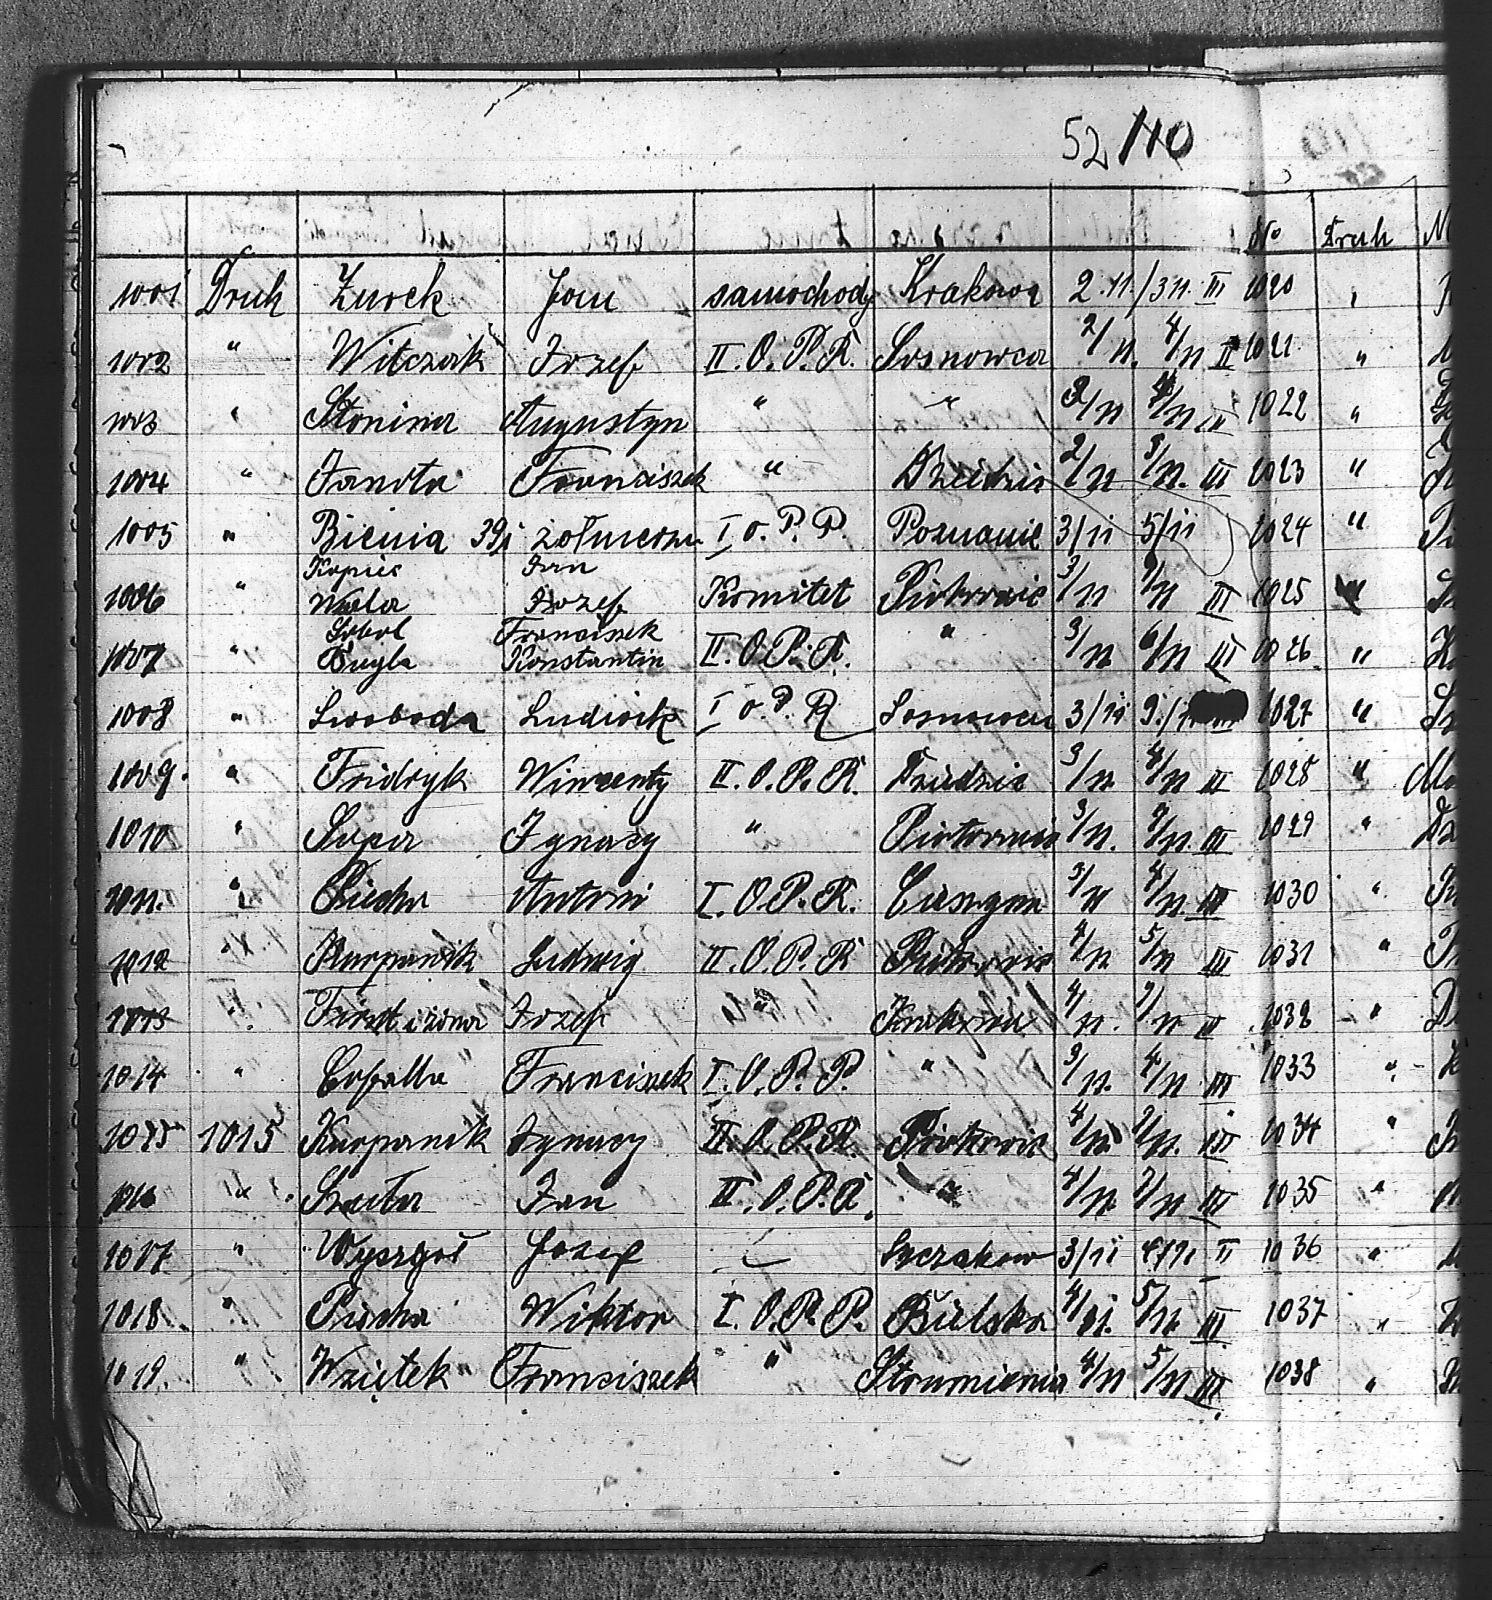 52 110
No Druh
1001 Druh Żurek Jan samochody Krakowa 2.11./3 11. III 1020 "
1002 " Witczak Józef II. O. P. R. Sosnowca 2/11. 4/11 II 1021 "
1003 " Słonina Augustyn " " 3/11 4/11 III 1022 "
1004 " Janota Franciszek " Dziedzic 2/11 3/11. III 1023 "
1005 " Bienia 39 i żołnierzu I o. P. P. Poznanie 3/11 5/11 1024 "
Kopiec Jan
1006 " Wala Józef Komitet Piotrowic 3/11 7/11 III 1025 "
Sobol Franciszek
1007 " Bugla Konstantin II. O. P. R. " 3/11 6/11 III 1026 "
1008 " Swoboda Ludwik I o. P. R Sosnowca 3/11 9./11 1027 "
1009. " Fridryk Wincenty II. O. P. R. Dziedzic 3/11 4/11 III 1028 "
1010 " Supa Ignacy " Piotrowic 3/11. 7/11. III 1029 "
1011. " Piecha Antoni I. O. P. R. Cieszyna 3/11 4/11. III 1030 "
1012 " Karpanik Ludwig II. O. P. R Piotrowic 4/11 5/11 III 1031 "
1013 " i żona Józef " Kraków 4/11. 7/11 III 1032 "
1014 " Franciszek I. O. P. P. " 3/11. 4/11. III 1033 "
1015 1015 Karpanik Ignacy II. O. P. R. Piotrowic 4/11. 7/11. III 1034 "
1016 " Szeita Jan II. O. P. R. " 4/11 7/11 III 1035 "
1017 " Józef Szczakow 3/11 4/11 II 1036 "
1018. " Piecha Wiktor I. O. P. P. Bielska 4/11. 5/11. III 1037 "
1019. " Wziętek Franciszek " Strumienia 4/11 5/11 III. 1038 "